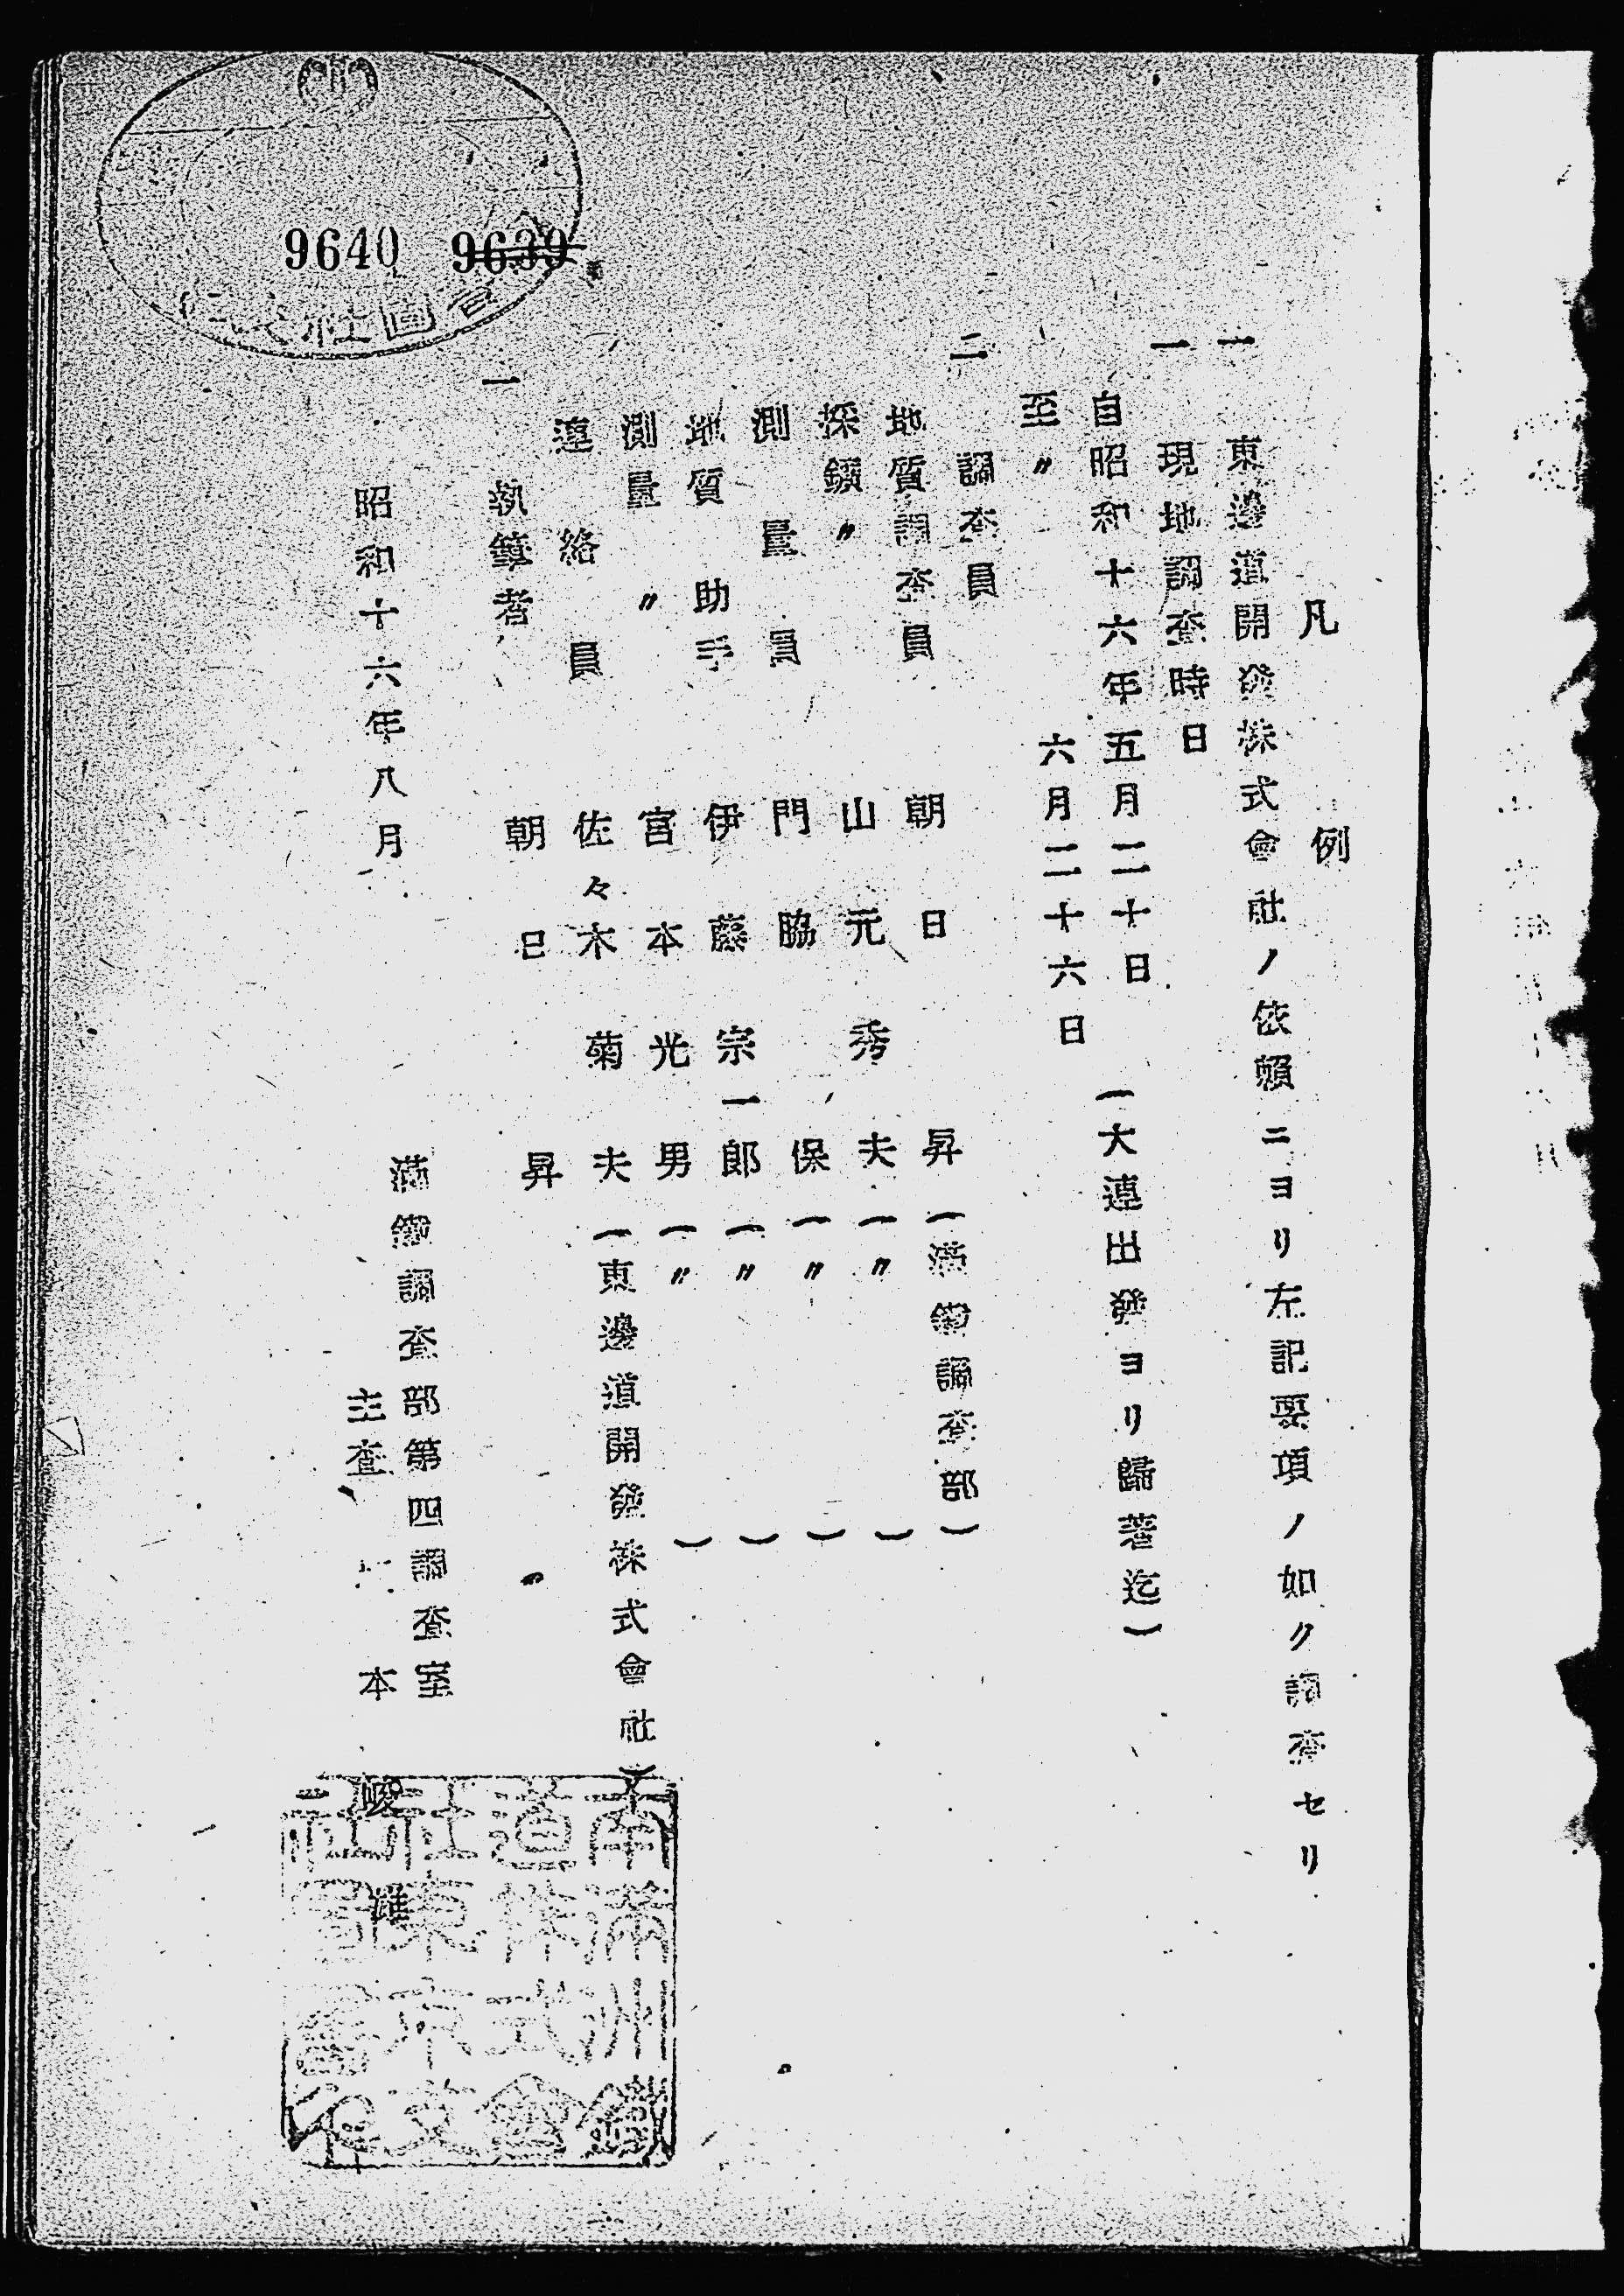 凡例
一 東邊道開發株式會社ノ依賴ニヨリ左記要項ノ如ク調査セリ
一 現地調査時日
自昭和十六年五月二十日
至〃 六月二十六日 (大連出發ヨリ歸著迄)
二 調査員
地質調査員 朝日昇(滿鐵調査部)
採鑛〃 山元秀夫(〃)
測量員 門脇保(〃)
地質助手 伊藤宗一郎(〃)
測量〃 宮本光男(〃)
連絡員 佐々木菊夫(東邊道開發株式會社)
一 執筆者 朝日昇
昭和十六年八月
滿鐵調査部第四調査室
主査 本
9640 9639
南滿洲鐵
道株式會
社東京支
社